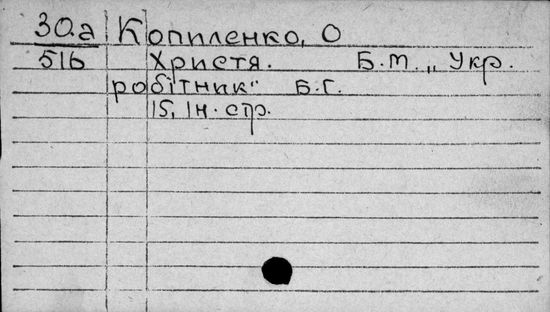 30.а Копиленко, О
516 Христя. Б.м. „Укр.
робітник" Б.г.
15, 1н. стр.